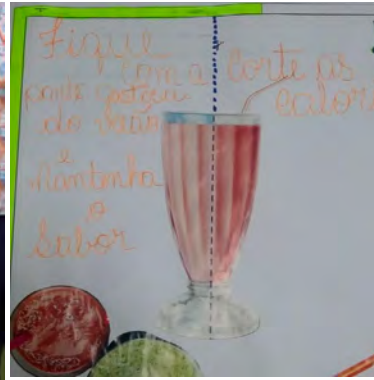 Fique
com a
parte gostosa
do verão
e
Mantenha
o
Sabor
Corte as
calor